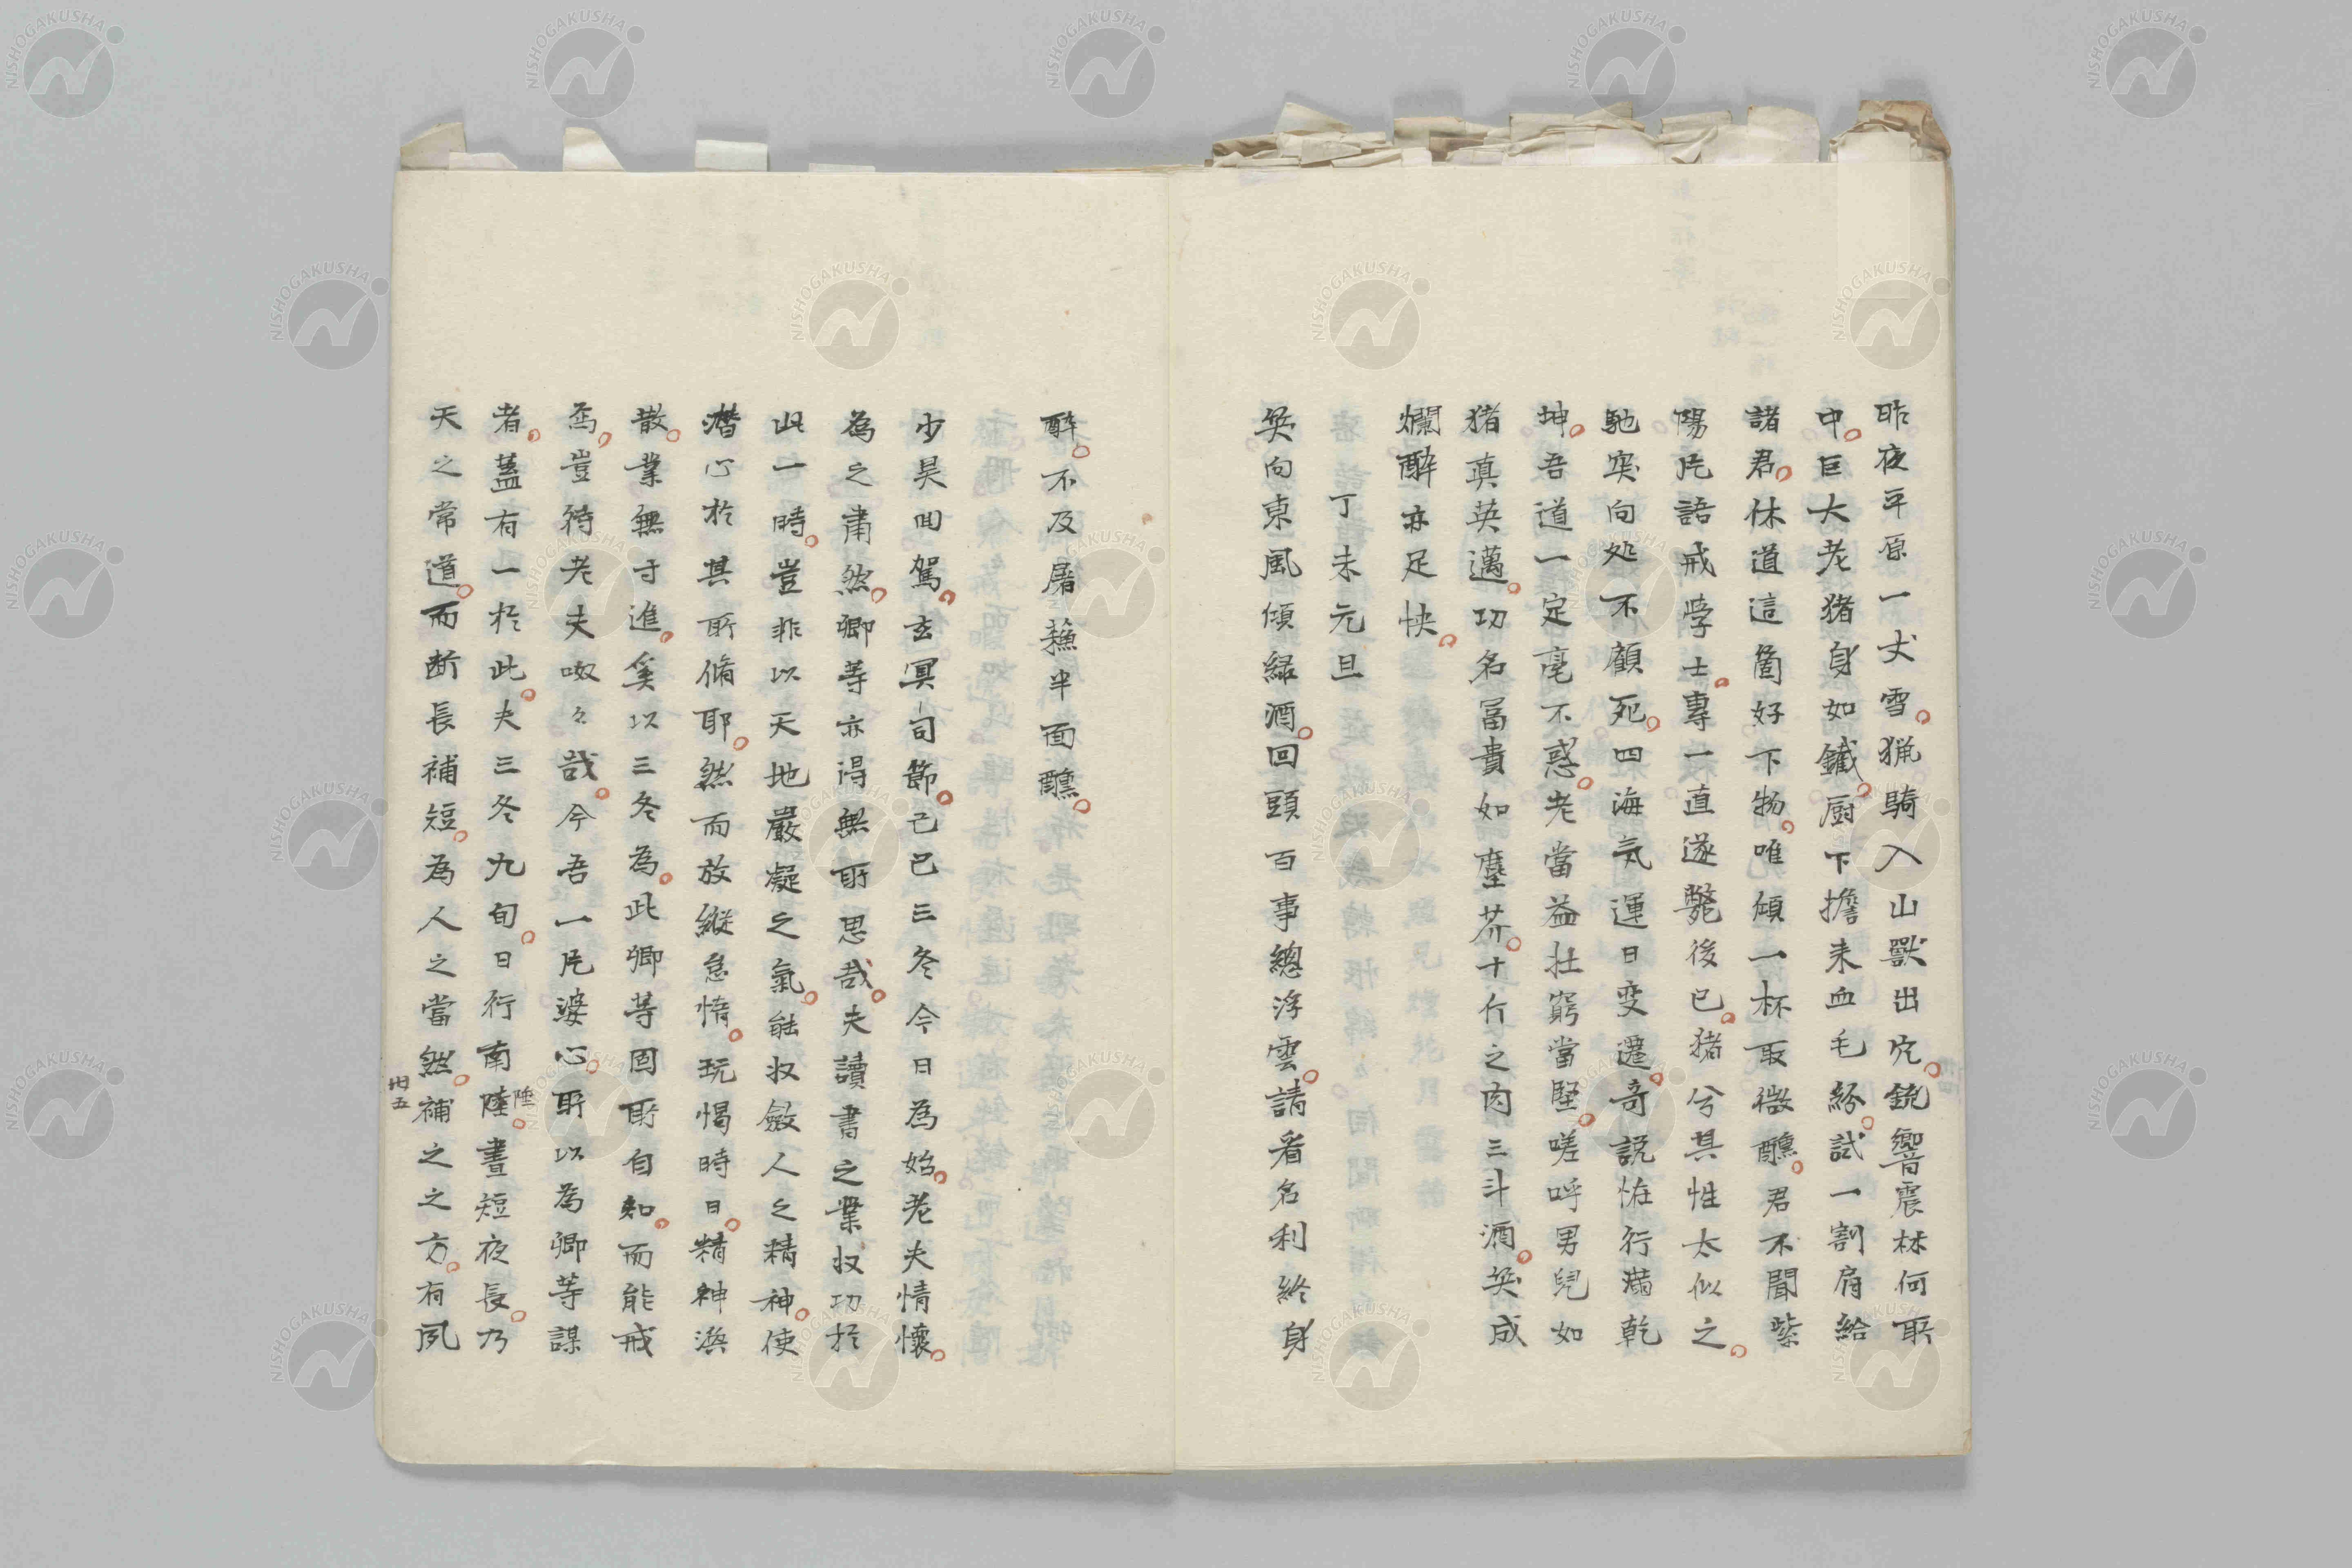 昨夜平原一丈雪。猟騎入山獣出穴。銃響震林何取
中。巨大老猪身如鐵。厨下擔来血毛紛。試一割肩給
諸君。休道這箇好下物。唯傾一杯取微醺。君不聞紫
陽先語戒学士。專一直遂斃後已。猪兮其性太似之。
馳突向処不顧死。四海気運日変遷。奇説怪行満乾
坤。吾道一定毫不惑。老當益壮窮當堅。嗟呼男兒如
猪真英邁。功名冨貴如塵芥。十斤之肉三斗酒。笑成
爛酔亦足快。
丁未元旦
笑向東風傾緑酒。回頭百事總浮雲。請看名利終身
酔。不及屠蘓半面醺。
少昊回駕。玄冥司節。己巳三冬今日為始。老夫情懐。
為之粛然。卿等亦得無所思哉。夫讀書之業収功於
此一時。豈非以天地嚴凝之氣。能収斂人之精神。使
潜心於其所脩耶。然而放縦怠惰。玩愒時日。精神渙
散。業無寸進。奚以三冬為。此卿等固所自知。而能戒
焉。豈待老夫呶々哉。今吾一片婆心。所以為卿等謀
者。蓋有一於此。夫三冬九旬。日行南陸。晝短夜長。乃
陸
天之常道。而断長補短。為人之當然。補之之方。有夙
丗五
NISHOGAKUSHA